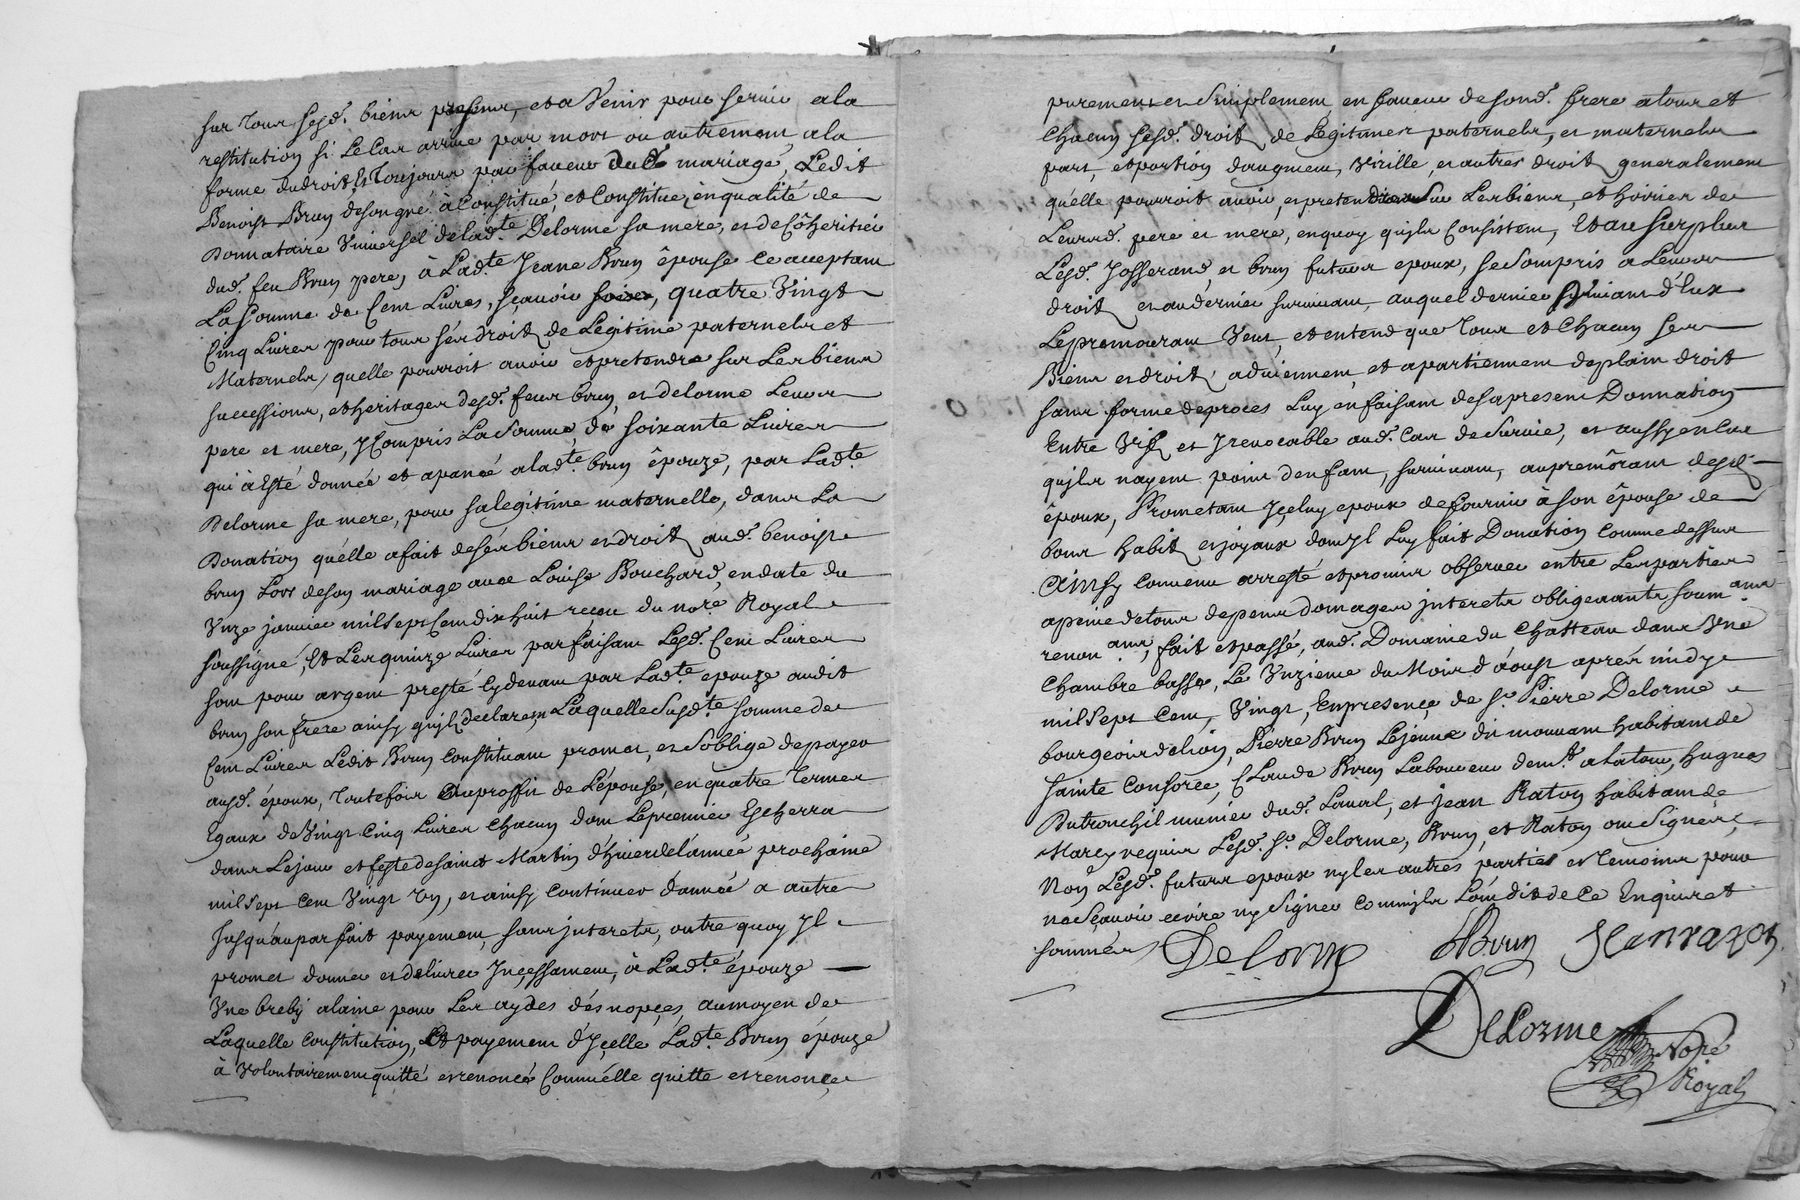 sur tous sesd. biens presens, et a Venir pour servir a la
restitution si Le Cas arrive par mort ou autrement a la
forme du droit Et Toujours par faveur dud. mariage, Ledit
Benoist Brun desongré à Constitué, et Constitue enqualité de
Donnataire Universel delad.te Delorme sa mere, et de Cohéritier
dud. feu Brun pere, à Lad.te Jeane Brun épouse ce acceptant
La Somme de Cent Livres, Sçavoir, quatre Vingt
Cinq Livres pour tous ses droit de Legitime paternels et
Maternels, quelle pourroit avoir et pretendre sur Les biens
successions, et heritages desd. feus brun, et delorme Leurs
pere et mere, y Compris La Somme, de soixante Livres
qui à Esté donnée et apanée a lad.te brun épouze, par Lad.te
Delorme sa mere, pour sa legitime maternelle, dans La
Donation quélle a fait de ses biens et droit aud. benoist
brun Lors de son mariage avec Louise Bouchard, en date du
Unze janvier mil Sept Cent dix huit reçeu du no.re Royal
soussigné, Et Les quinze Livres parfaisant Lesd. Cent Livres
sont pour argent presté Cydevant par Lad.te epouze audit
brun son frere ainsy quils declarent, Laquelle Susd.te somme de
Cent Livres Ledit Brun Constituant promet, et S'oblige de payer
ausd. époux, Toutefois au proffit de L'épouse, en quatre Termes
Egaux de Vingt Cinq Livres Chacun dont Le premier Escherra
dans Le jour et feste de saint Martin d'hiver de l'année prochaine
mil Sept Cent Vingt Un, et ainsy Continuer d'année a autre
Jusqu'au parfait payement, sans interets, outre quoy Il
promet donner et delivrer Inçessament, à Lad.te épouze
Une breby a laine pour Les aydes dés nopçes, au moyen de
Laquelle Constitution, Et payement d'Içelle Lad.te Brun épouze
à Volontairement quitté et renoncé Comme élle quitte et renonçe
purement et Simplement en faveur de sond. frere a tous et
Chacun sesd. droit de Legitimes paternels, et maternels
part, et portion daugment, Virille, et autres droit generalement
quélle pourroit avoir, et pretendre sur Les biens, et hoiries de
Leursd. pere et mere, en quoy quils Consistent, Et au surplus
Lesd. Josserand, et brun futurs epoux, se Sont pris a Leurs
droit et au dernier survivant, auquel dernier survivant d'Eux
Le premourant Veut, et entend que Tous et Chacun ses
Biens et droit adviennent, et apartiennent de plain droit
sans forme de proces Luy en faisant des a present Donnation
Entre Vifs et Irevocable aud. Cas de Survie, et aussy en Cas
qu'ils nayent point denfant, survivant, au premôrant desd.
époux, Prometant Içeluy epoux de fournir à son épouse de
bons habit et joyaux dont Il Luy fait Donation Comme dessus
Ainsy Convenu arresté et promis observer entre Les parties
a peine de tous depens domages interets obligeants soum.ons
renon.ons, fait et passé, aud. Domaine du Chasteau dans Une
Chambre basse, Le Unzieme du Mois d'Aoust aprés midy
mil Sept Cent, Vingt, En presençe de s.r Pierre Delorme
bourgeois de lion, Pierre Brun Lejeune dit mouvant habitant de
sainte Consorce, Claude Brun Laboureur dem.t a Latour, hugues
Dutronchil munier dud. Laval, et jean Raton habitant de
Marcy requis Lesd. s.r Delorme, Brun, et Raton ont Signés,
Non Lesd. futurs epoux ny les autres parties et Temoins pour
ne Sçavoir ecrire ny Signer Comm'ils L'ont dit de Ce Enquis et
sommés
Delorme Brun Jean raton
Delorme
No.re
Royal